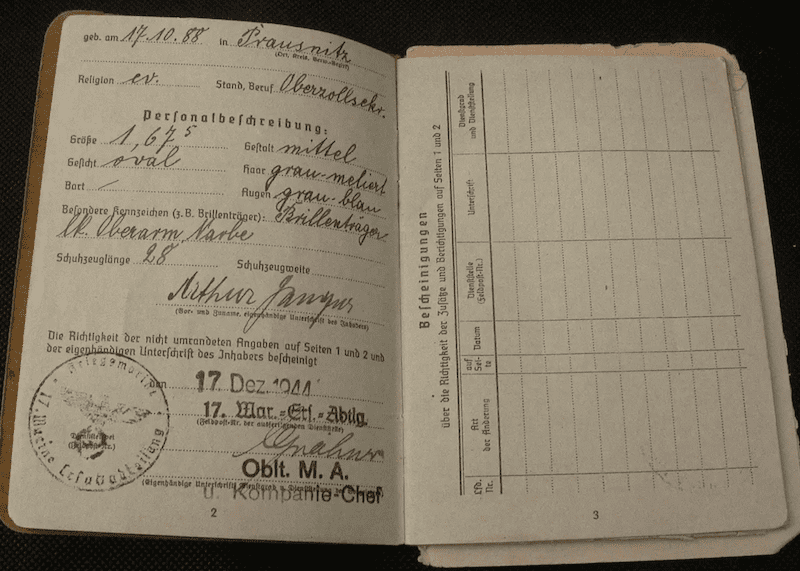 geb. am 17.10.88 in Prausnitz
(Ort, Kreis, Verw.-Bezirk)
Religion ev. Stand, Beruf Oberzollsekr.
Personalbeschreibung:
Größe 1,67⁵ Gestalt mittel
Gesicht oval Haar grau-meliert
Bart – Augen grau-blau
Besondere Kennzeichen (z.B. Brillenträger): Brillenträger
lk. Oberarm Narbe
Schuhzeuglänge 28 Schuhzeugweite
Arthur
(Vor- und Zuname, eigenhändige Unterschrift des Inhabers)
Die Richtigkeit der nicht umrandeten Angaben auf Seiten 1 und 2 und
der eigenhändigen Unterschrift des Inhabers bescheinigt
den 17. Dez. 1944
17. Mar.-Ers.-Abtlg.
(Feldpost-Nr. der ausfertigenden Dienststelle)
Oblt. M. A.
(Eigenhändige Unterschrift, Dienstgrad u. Dienststellung)
u. Kompanie-Chef
Kriegsmarine
17. Marine Ersatzabteilung
Dienststempel
(Feldpost-Nr.)
2
Bescheinigungen
über die Richtigkeit der Zusätze und Berichtigungen auf Seiten 1 und 2
Lfd. Nr.
Art der Änderung
auf Sei-te
Datum
Dienststelle (Feldpost-Nr.)
Unterschrift
Dienstgrad und Dienststellung
3